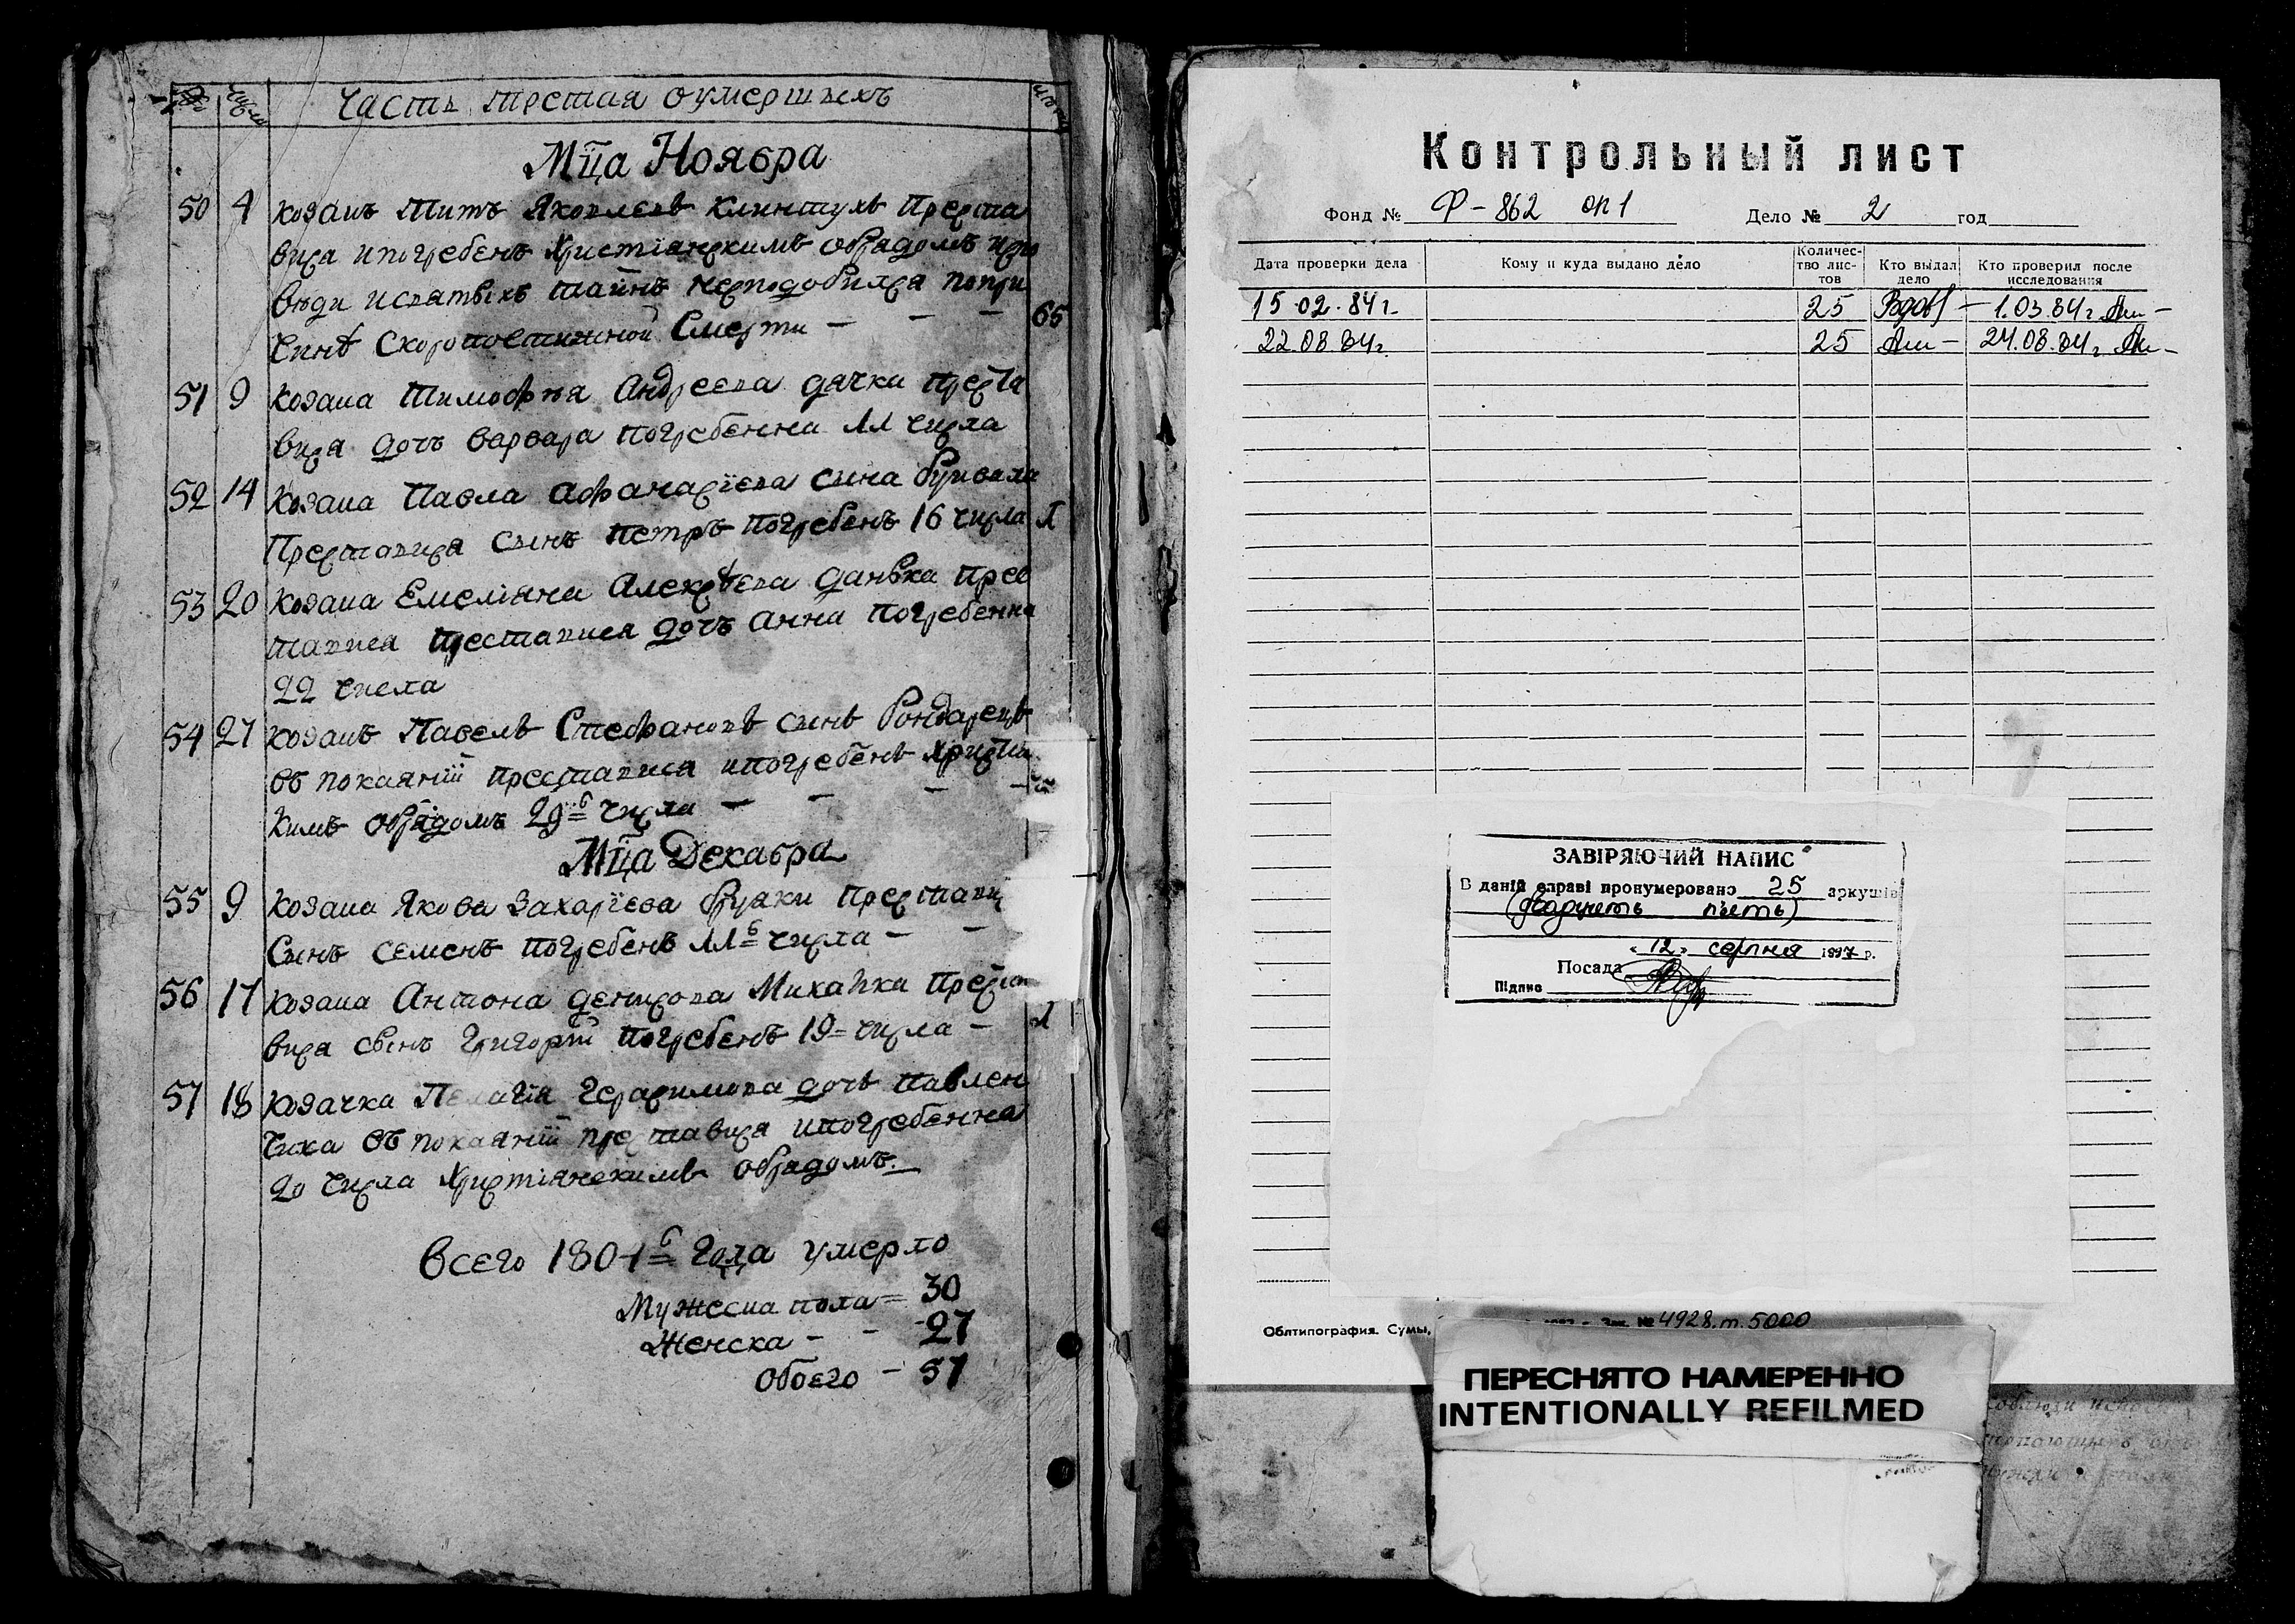 Число
Часть третая оумершыхъ
Мца Ноября
50 4 козакъ Титъ Яковлевъ Клинтухъ Преста
вися и погребенъ Христіянскимъ обрядомъ испо
вѣди и святыхъ таинъ несподобился попри
чинѣ Скоропостижной Смерти — — — 65
51 9 козака Тимофѣя Андреева дячки Преста
вися дочъ варвара погребенна 11 числа
52 14 козака Павла афанасіева сына
Преставися сынъ петръ погребенъ 16 числа 1
53 20 козака Емеліяна Алексѣева данька прес
тавися преставися дочъ анна погребенна
22 числа
54 27 козакъ Павелъ Стефановъ сынъ Бондарецъ
въ покаяніи преставися и погребенъ христиа
кимъ обрядомъ 29 го числа — — — —
Мца Декабра
55 9 козака Якова Захаріева Преставис
Сынъ семенъ погребенъ 11 го числа — —
56 17 козака Антона денисова Михайка Преста
вися сынъ Григорій погребенъ 19 числа — 1
57 18 козачка Пелагія Герасимова дочъ павлен
чиха въ покаяніи преставися и погребенна
20 числа Христіянскимъ обрядомъ.
Всего 1804 го года умерло
Мужеска пола = 30
Женска — — 27
Обоего — 57
Контрольный лист
Фонд № Ф-862 оп 1 Дело № 2 год
Дата проверки дела Кому и куда выдано дело Количес-тво лис-тов Кто выдал дело Кто проверил после исследования
15.02.84г. 25 1.03.84г.
22.08.84г. 25 24.08.84г.
ЗАВІРЯЮЧИЙ НАПИС
В даній справі пронумеровано 25 аркушів
(двадцять п'ять)
"12" серпня 1997 р.
Посада
Підпис
Облтипография. Сумы, Зак. № 4928. т. 5000
ПЕРЕСНЯТО НАМЕРЕННО
INTENTIONALLY REFILMED